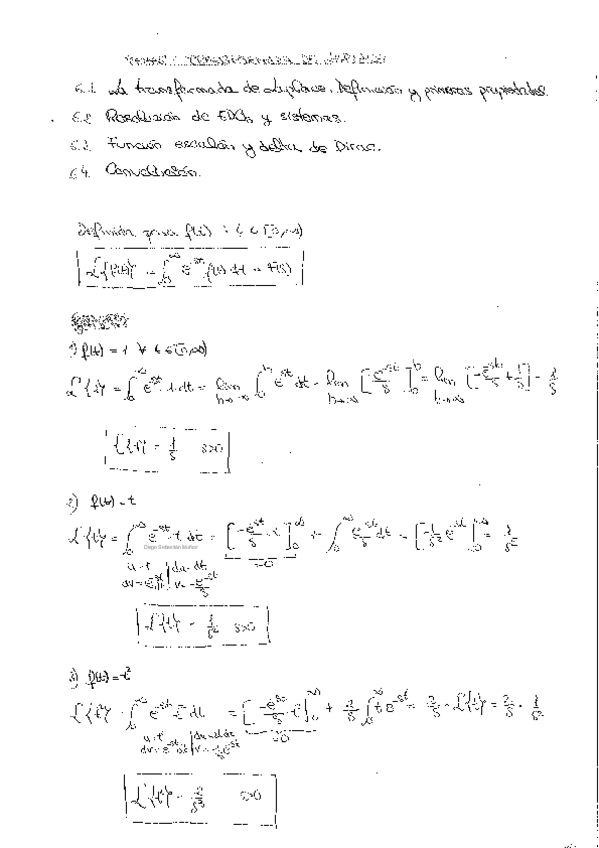 6.1. La transformada de Laplace. Definición y primeras propiedades.
6.2 Resolución de EDOs y sistemas.
6.3. Función escalón y delta de Dirac.
6.4. Convolución.
Definición para f(t) : t ∈ [0,∞)
ℒ{f(t)} = ∫₀^∞ e^{-st} f(t) dt = F(s)
1) f(t) = 1 ∀ t ∈ [0,∞)
ℒ{1} = ∫₀^∞ e^{-st} 1 dt = lim_{b→∞} ∫₀^b e^{-st} dt = lim_{b→∞} [e^{-st}/s]₀^b = lim_{b→∞} [-e^{-sb}/s + 1/s] = 1/s
ℒ{1} = 1/s s>0
2) f(t) = t
ℒ{t} = ∫₀^∞ e^{-st} t dt = [-e^{-st}/s t]₀^∞ + ∫₀^∞ e^{-st}/s dt = [-1/s² e^{-st}]₀^∞ = 1/s²
Diego Sebastián Muñoz
u=t du=dt =0
dv=e^{-st} v=-e^{-st}/s
ℒ{t} = 1/s² s>0
3) f(t) = t²
ℒ{t²} = ∫₀^∞ e^{-st} t² dt = [-e^{-st}/s t²]₀^∞ + 2/s ∫₀^∞ t e^{-st} = 2/s · ℒ{t} = 2/s · 1/s²
=0
ℒ{t²} = 2/s³ s>0